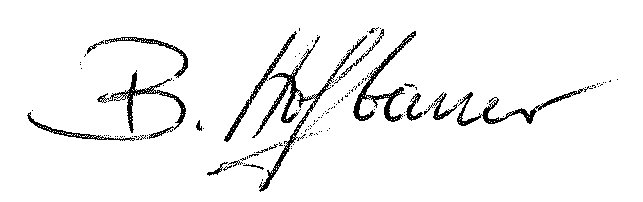 B. Hofbauer